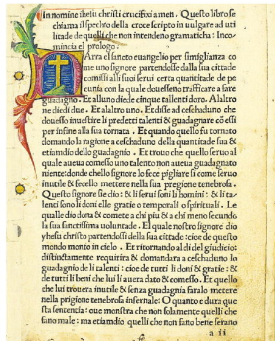 In nomine ihesu christi crucifixi amen. Questo libro se
chiama ilspechio della croce scripto in uulgare ad uti
litade de quelli che non intendeno gramaticha: Inco
mincia el prologo.
Arra el sancto euangelio per simiglianza co
me uno signore partendosse dalla sua cittade
comissi alli suoi serui certa quantitade de pe
cunia con la quale douesseno trafficare a fare
guadagno. Et alluno diede cinque tallenti doro. Alaltro
ne diedi due. Et alaltro uno. Et disse ad ceschaduno che
douesso inuestire li predetti talenti & guadagnare cō essi
per insine alla sua tornata. Et quando quello fu tornato
domando la ragione a ceschaduno della quantitade sua &
etiamdio dello guadagnio. Et trouo che quello seruo al
quale aueua comesso uno talento non aueua guadagnato
niente: donde chello signore lo fece pigliare si come seruo
inutile & fecelo mettere nella sua pregione tenebrosa.
Questo signore sie dio: & li serui sono li homini: & li ta
lenti sono li doni elle gratie o temporali o spirituali. Le
qualle dio dota & comete a chi piu & a chi meno secundo
la sua sanctissima uoluntade. El quale nostro signore dio
yhesu christo partendossi della sua cittade: cioe de questo
mondo monto in cielo. Et ritornando al di del giudicio:
distinctamente requirira & domandara a ceschaduno lo
guadagno de li talenti: cioe de tutti li doni & gratie: &
de tutti li beni che lui li auera dato & comesso. Et quello
che lui trouera inutile & senza guadagnia faralo metere
nella prigione tenebrosa infernale: O quanto e dura que
sta sententia: oue monstra che non solamente quelli che
fano male: ma etiamdio quelli che non fano bene serano
a ii